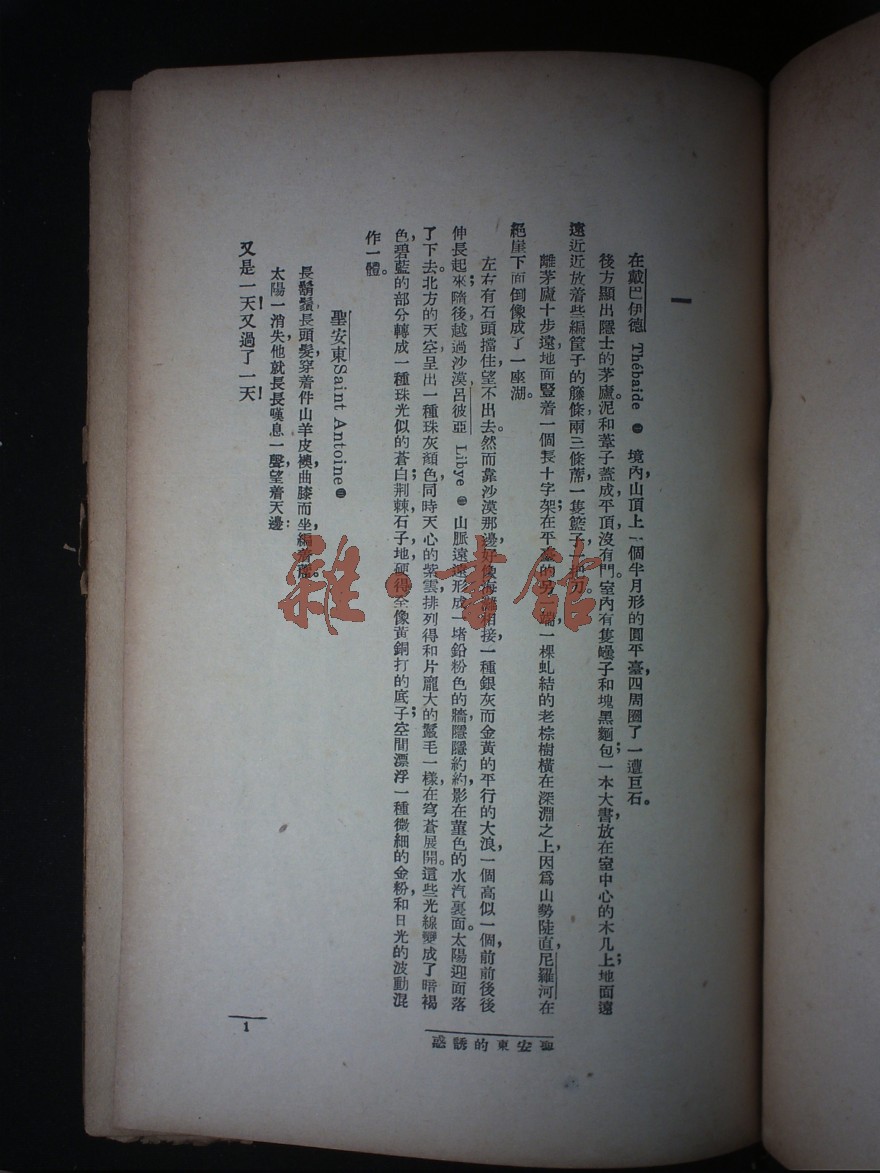 一
在戴巴伊德 Thébaide ● 境內,山頂上一個半月形的圓平臺,四周圈了一遭巨石。
後方顯出隱士的茅廬。泥和葦子蓋成,平頂,沒有門。室內有隻罎子和塊黑麵包;一本大書,放在室中心的木几上;地面遠
遠近近放着些編筐子的籐條,兩三條蓆,一隻籃子,一把刀。
離茅廬十步遠,地面豎着一個長十字架;在平臺的另一端,一棵虬結的老棕樹橫在深淵之上,因爲山勢陡直,尼羅河在
絕崖下面倒像成了一座湖。
左右有石頭擋住,望不出去。然而靠沙漠那邊,好像海灘相接,一種銀灰而金黃的平行的大浪,一個高似一個,前前後後
伸長起來;隨後越過沙漠,呂彼亞 Libye ● 山脈遠遠形成一堵鉛粉色的牆,隱隱約約,影在堇色的水汽裏面。太陽迎面落
了下去。北方的天空呈出一種珠灰顏色,同時天心的紫雲,排列得和片龐大的鬣毛一樣,在穹蒼展開。這些光線變成了暗褐
色,碧藍的部分轉成一種珠光似的蒼白;荆棘,石子,地,硬得全像黃銅打的底子;空間漂浮一種微細的金粉,和日光的波動混
作一體。
聖安東Saint Antoine●
長鬍鬚,長頭髮,穿着件山羊皮襖,曲膝而坐,編着蓆。
太陽一消失,他就長長嘆息一聲,望着天邊:
又是一天!又過了一天!
聖安東的誘惑
1
雜·書館